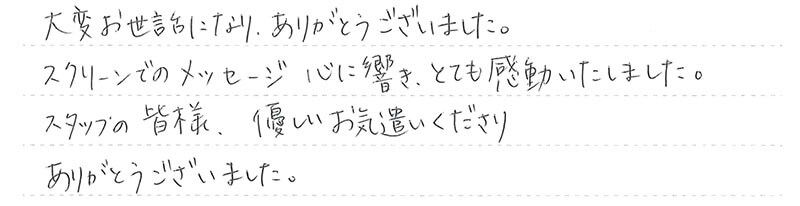 大変お世話になり、ありがとうございました。
スクリーンでのメッセージ 心に響き、とても感動いたしました。
スタッフの皆様、優しいお気遣いくださり
ありがとうございました。